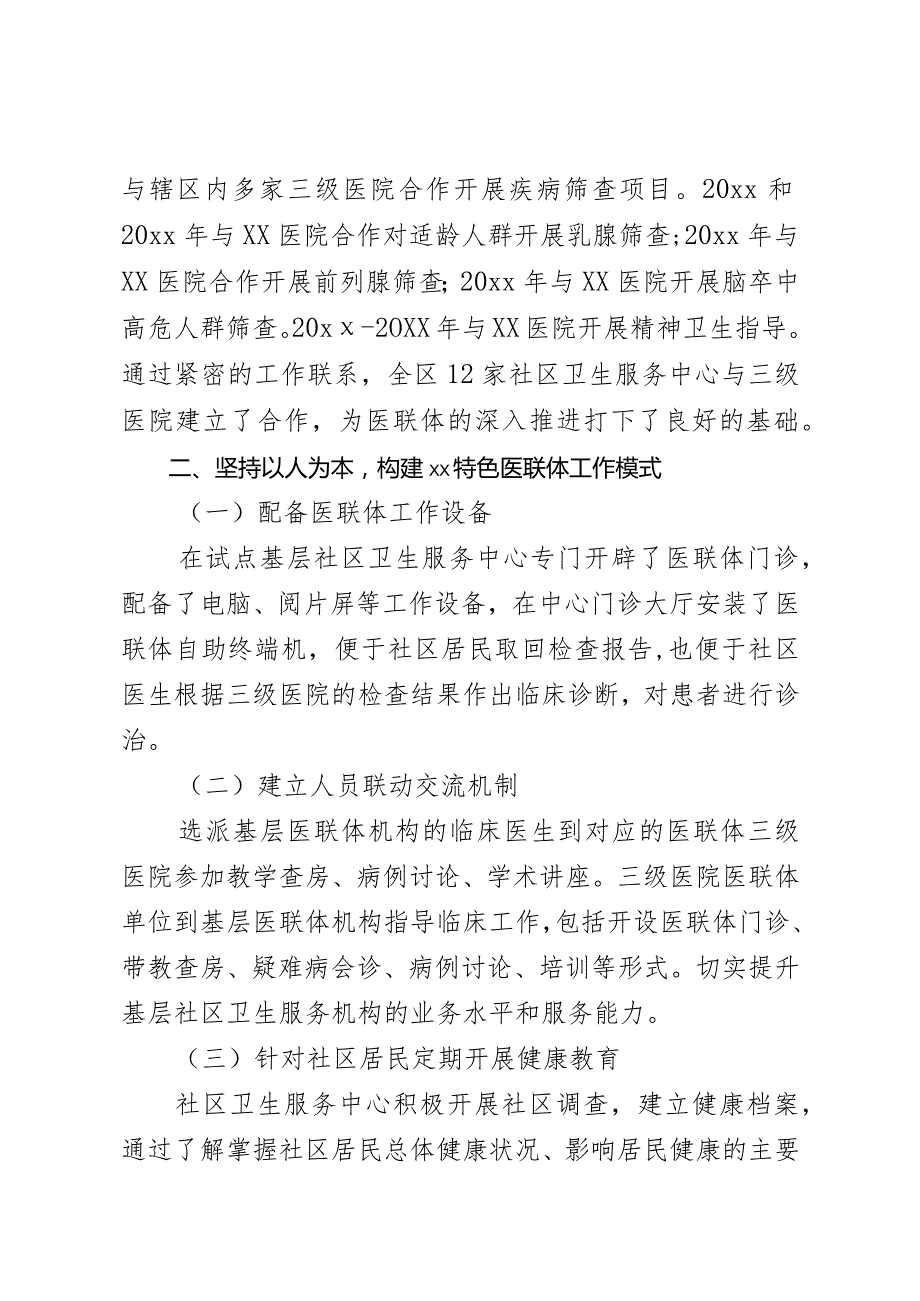 与辖区内多家三级医院合作开展疾病筛查项目。20xx 和
20xx 年与 XX 医院合作对适龄人群开展乳腺筛查;20xx 年与
XX 医院合作开展前列腺筛查；20xx 年与 XX 医院开展脑卒中
高危人群筛查。20xx-2OXX 年与 XX 医院开展精神卫生指导。
通过紧密的工作联系，全区 12 家社区卫生服务中心与三级
医院建立了合作，为医联体的深入推进打下了良好的基础。
二、坚持以人为本，构建 xx 特色医联体工作模式
（一）配备医联体工作设备
在试点基层社区卫生服务中心专门开辟了医联体门诊，
配备了电脑、阅片屏等工作设备，在中心门诊大厅安装了医
联体自助终端机，便于社区居民取回检查报告,也便于社区
医生根据三级医院的检查结果作出临床诊断，对患者进行诊
治。
（二）建立人员联动交流机制
选派基层医联体机构的临床医生到对应的医联体三级
医院参加教学查房、病例讨论、学术讲座。三级医院医联体
单位到基层医联体机构指导临床工作,包括开设医联体门诊、
带教查房、疑难病会诊、病例讨论、培训等形式。切实提升
基层社区卫生服务机构的业务水平和服务能力。
（三）针对社区居民定期开展健康教育
社区卫生服务中心积极开展社区调查，建立健康档案，
通过了解掌握社区居民总体健康状况、影响居民健康的主要